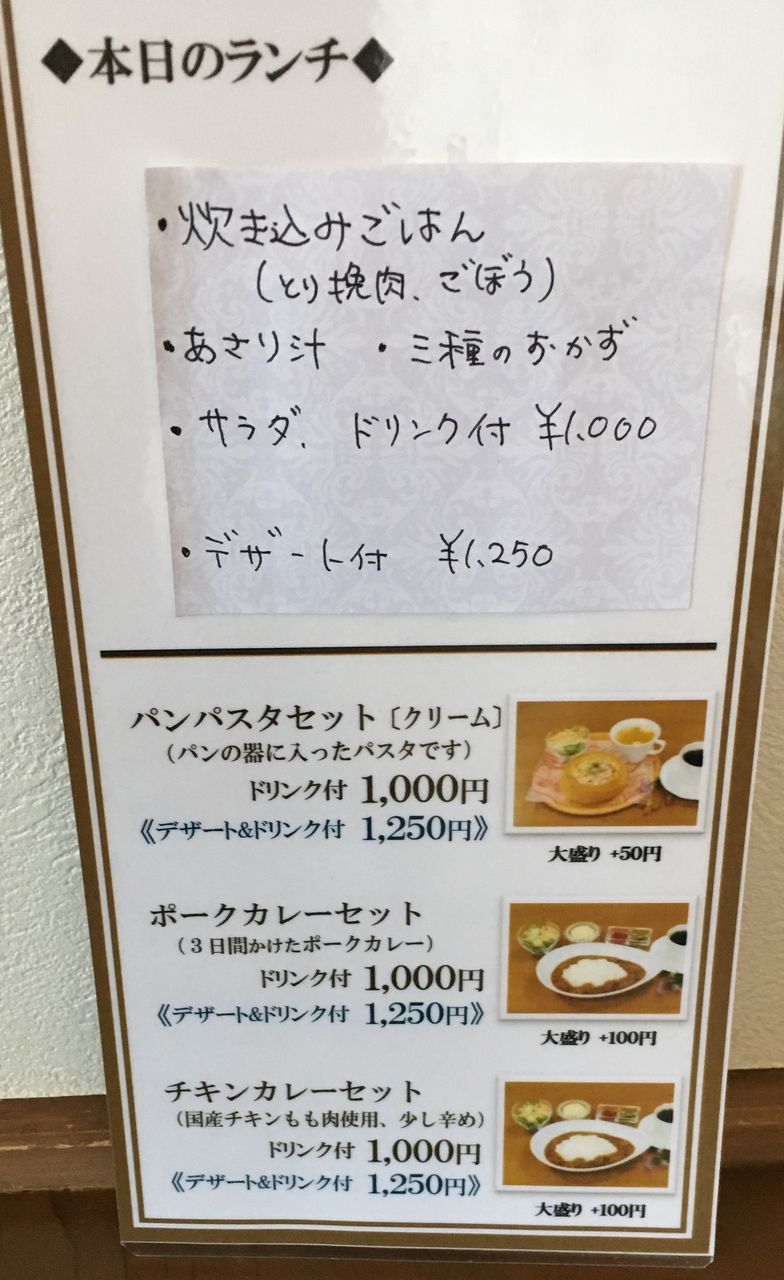 ◆本日のランチ◆
・炊き込みごはん
(とり挽肉、ごぼう)
・あさり汁 ・三種のおかず
・サラダ、ドリンク付 ¥1,000
・デザート付 ¥1,250
パンパスタセット〔クリーム〕
(パンの器に入ったパスタです)
ドリンク付 1,000円
《デザート&ドリンク付 1,250円》
大盛り +50円
ポークカレーセット
(3日間かけたポークカレー)
ドリンク付 1,000円
《デザート&ドリンク付 1,250円》
大盛り +100円
チキンカレーセット
(国産チキンもも肉使用、少し辛め)
ドリンク付 1,000円
《デザート&ドリンク付 1,250円》
大盛り +100円